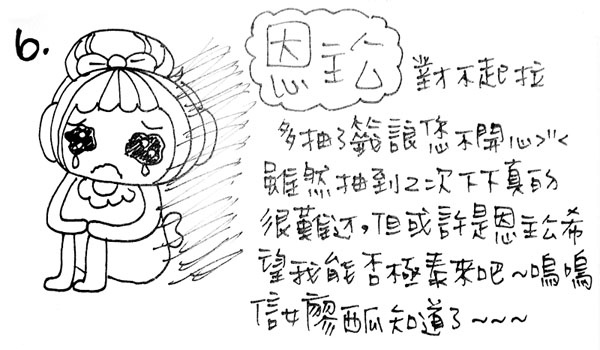 6.
恩主公 對不起拉
多抽了籤讓您不開心>"<
雖然抽到2次下下真的
很難過,但或許是恩主公希
望我能否極泰來吧~嗚嗚
信女廖瓜知道了~~~